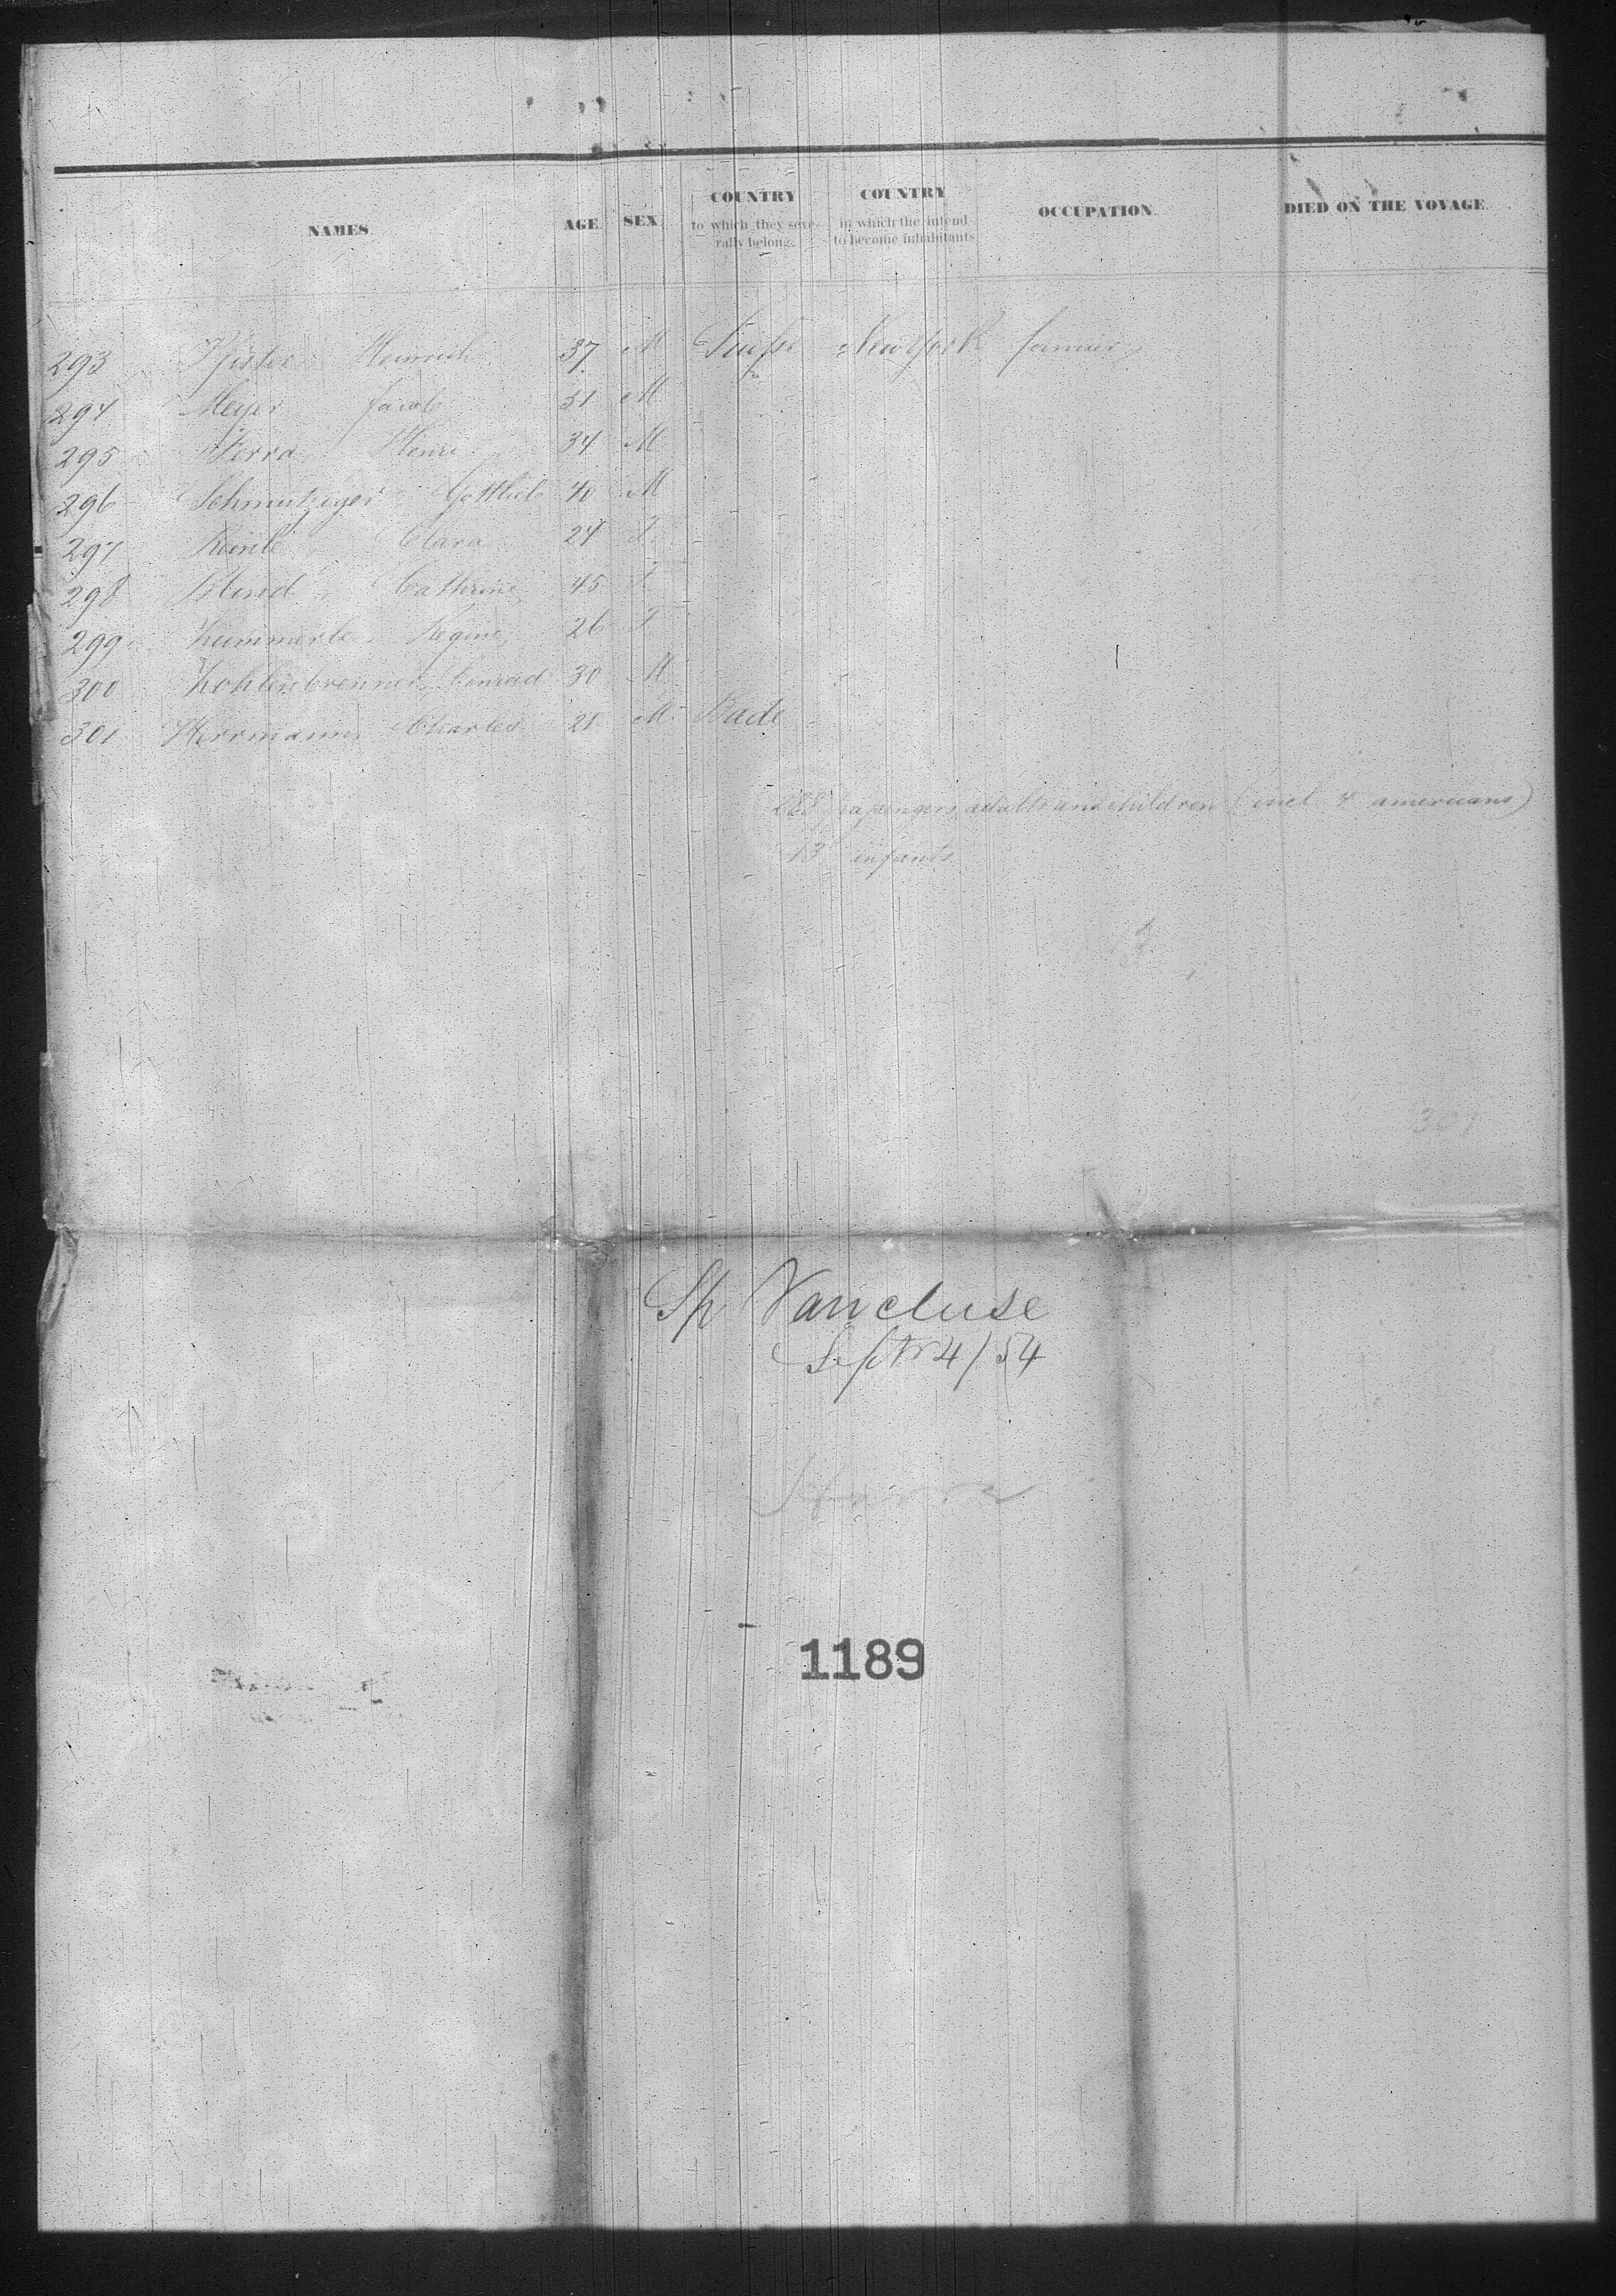 NAMES AGE SEX COUNTRY to which they severally belong. COUNTRY in which the intend to become inhabitants OCCUPATION DIED ON THE VOYAGE
293 Pfister Heinrich 37 M Suisse New York farmer
294 Meyer Jacob 51 M
295 Werra Henri 34 M
296 Schmutziger Gottlieb 40 M
297 Clara 24 F
298 Cathrine 45 F
299 Kummerle Regine 26 F
300 Kohlenbrenner Conrad 30 M
301 Herrmann Charles 21 M Bade
288 passengers adults and children (incl 4 americans)
13 infants
13
301
Sp Vancluse
Septr 4/54
Havre
1189